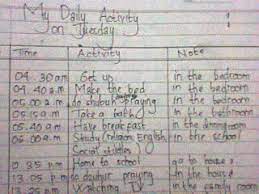 My Daily Activity
on Tuesday
Time Activity Note
04.30 am Get up in the bedroom
04.40 a.m Make the bed in the bedroom
05.00 a.m do shubuh praying in the bedroom
05.15 a.m Take a bath in the bathroom
05.40 a.m Have breakfast in the dining room
06.00 Study (reading English in the
Social studies)
Home to school go to house
so dzuhur praying in house
Watching TV in the family room